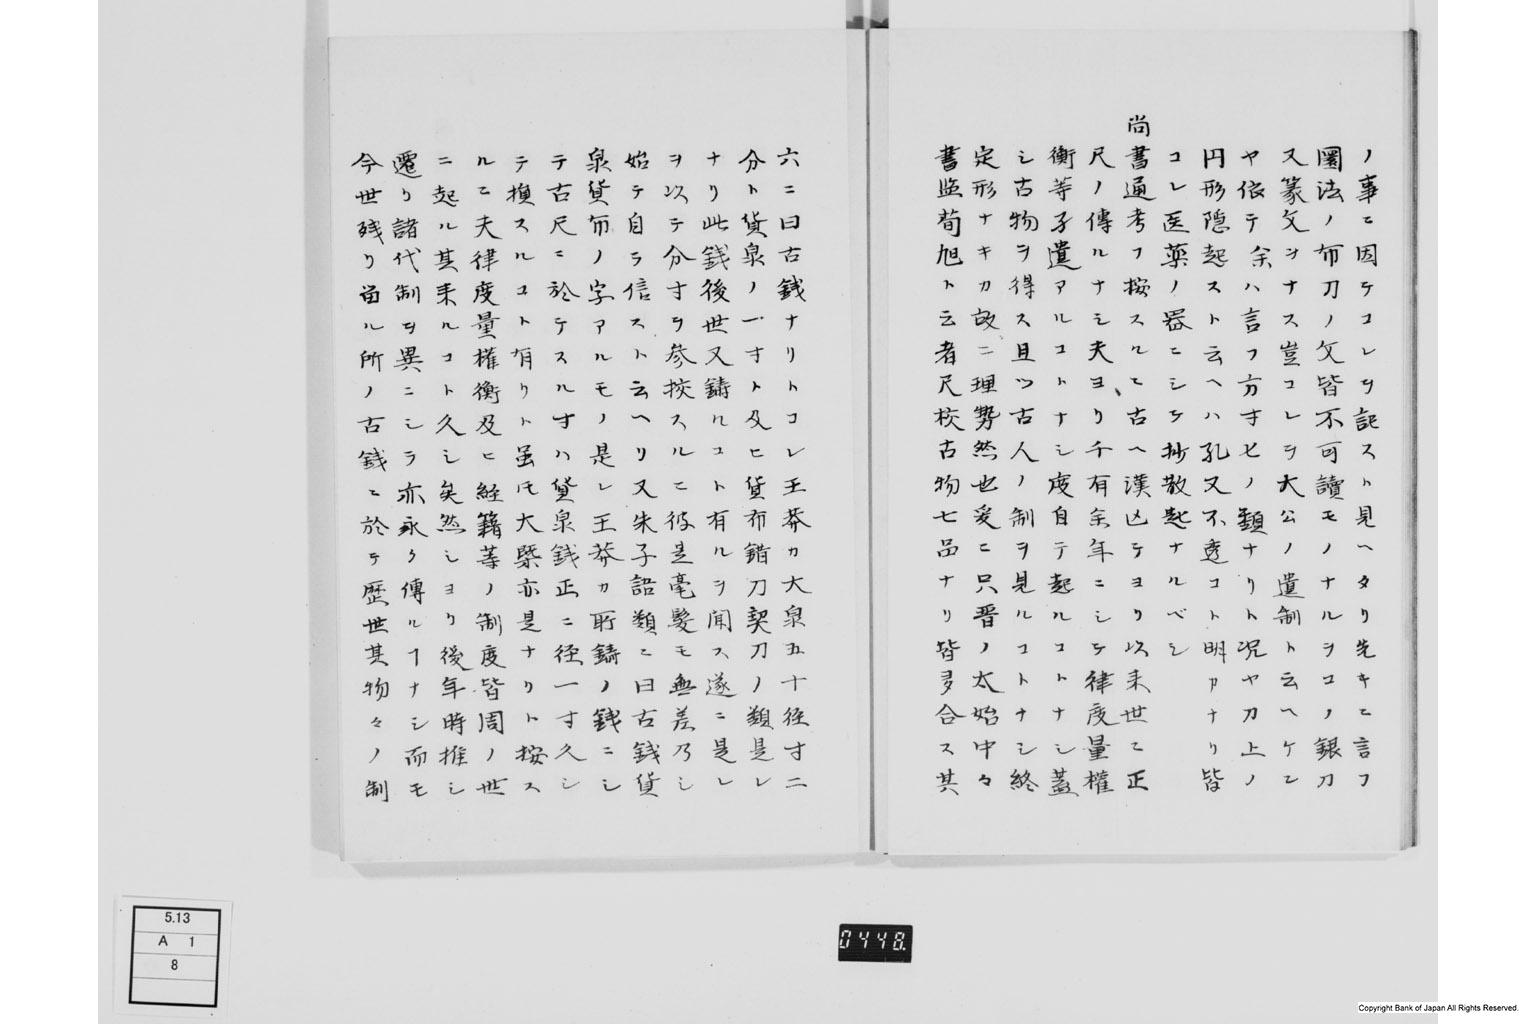 ノ事ニ因テコレヲ記スト見ヘタリ先キニ言フ
圜法ノ布刀ノ文皆不可讀モノナルヲコノ銀刀
又篆文ヲナス豈コレヲ大公ノ遺制ト云ヘケン
ヤ依テ余ハ言フ方寸匕ノ類ナリト况ヤ刀上ノ
円形隠起スト云ヘハ孔又不透コト明カナリ皆
コレ医薬ノ器ニシテ抄散匙ナルベシ
尚書通考フ按スルニ古ヘ漢ニテヨリ以来世ニ正
尺ノ傳ルナシ夫ヨリ千有余年ニシテ律度量權
衡等孑遺アルコトナシ度自テ起ルコトナシ蓋
シ古物ヲ得ス且ツ古人ノ制ヲ見ルコトナシ終
定形ナキカ故ニ理勢然也爰ニ只晋ノ太始中々
書監荀旭ト云者尺校古物七品ナリ皆多合ス其
六ニ曰古錢ナリトコレ王莽カ大泉五十径寸二
分ト貨泉ノ一寸ト及ヒ貨布錯刀契刀ノ類是レ
ナリ此銭後世又鑄ルコト有ルヲ聞ス遂ニ是レ
ヲ以テ分寸ヲ参挍スルニ彼是毫髪モ無差乃シ
始テ自ラ信スト云ヘリ又朱子語類ニ曰古錢貨
泉貨布ノ字アルモノ是レ王莽カ所鑄ノ錢ニシ
テ古尺ニ於テスル寸ハ貨泉錢正ニ径一寸久シ
テ損スルコト有リト虽𪜈大槩亦是ナリト按ス
ルニ夫律度量權衡及ヒ経籍等ノ制度皆周ノ世
ニ起ル其来ルコト久シ矣然シヨリ後年時推シ
遷リ諸代制ヲ異ニシラ亦永ク傳ルヿナシ而モ
今世残リ畄ル所ノ古銭ニ於テ歴世其物々ノ制
5.13
A 1
8
0448.
Copyright Bank of Japan All Rights Reserved.